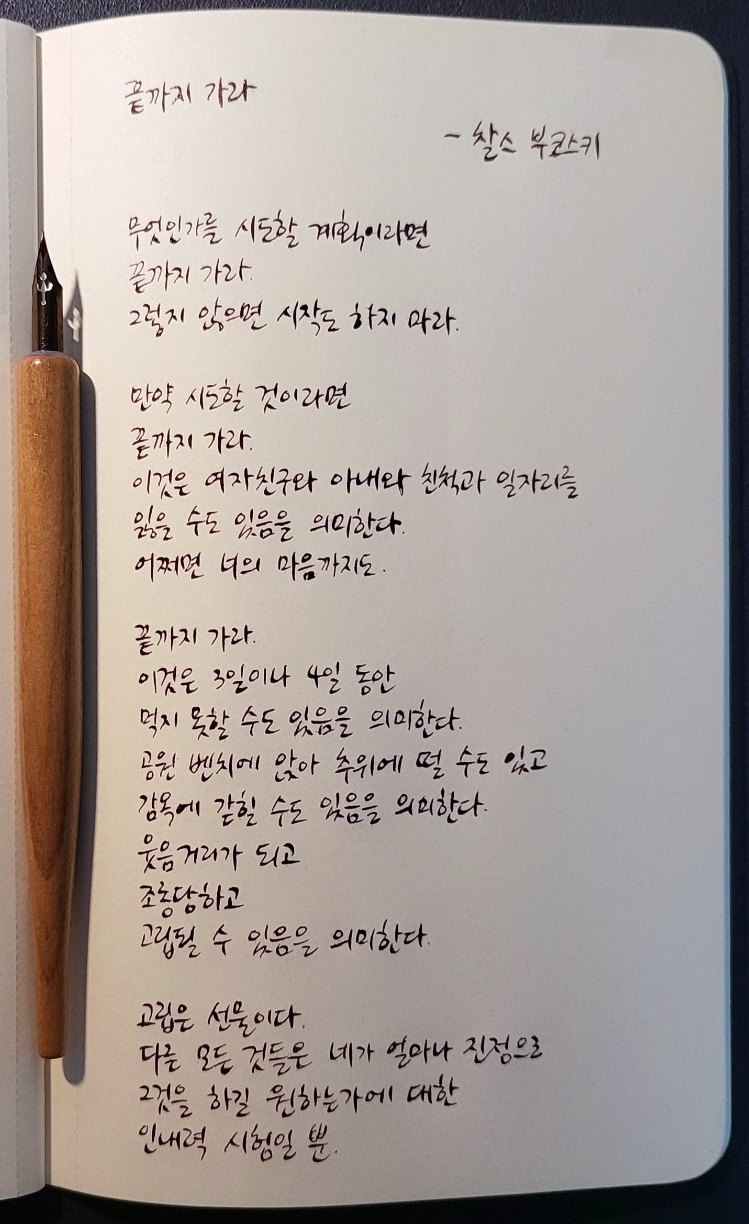 끝까지 가라
- 찰스 부코스키
무엇인가를 시도할 계획이라면
끝까지 가라.
그렇지 않으면 시작도 하지 마라.
만약 시도할 것이라면
끝까지 가라.
이것은 여자친구와 아내와 친척과 일자리를
잃을 수도 있음을 의미한다.
어쩌면 너의 마음까지도.
끝까지 가라.
이것은 3일이나 4일 동안
먹지 못할 수도 있음을 의미한다.
공원 벤치에 앉아 추위에 떨 수도 있고
감옥에 갇힐 수도 있음을 의미한다.
웃음거리가 되고
조롱당하고
고립될 수 있음을 의미한다.
고립은 선물이다.
다른 모든 것들은 네가 얼마나 진정으로
그것을 하길 원하는가에 대한
인내력 시험일 뿐.